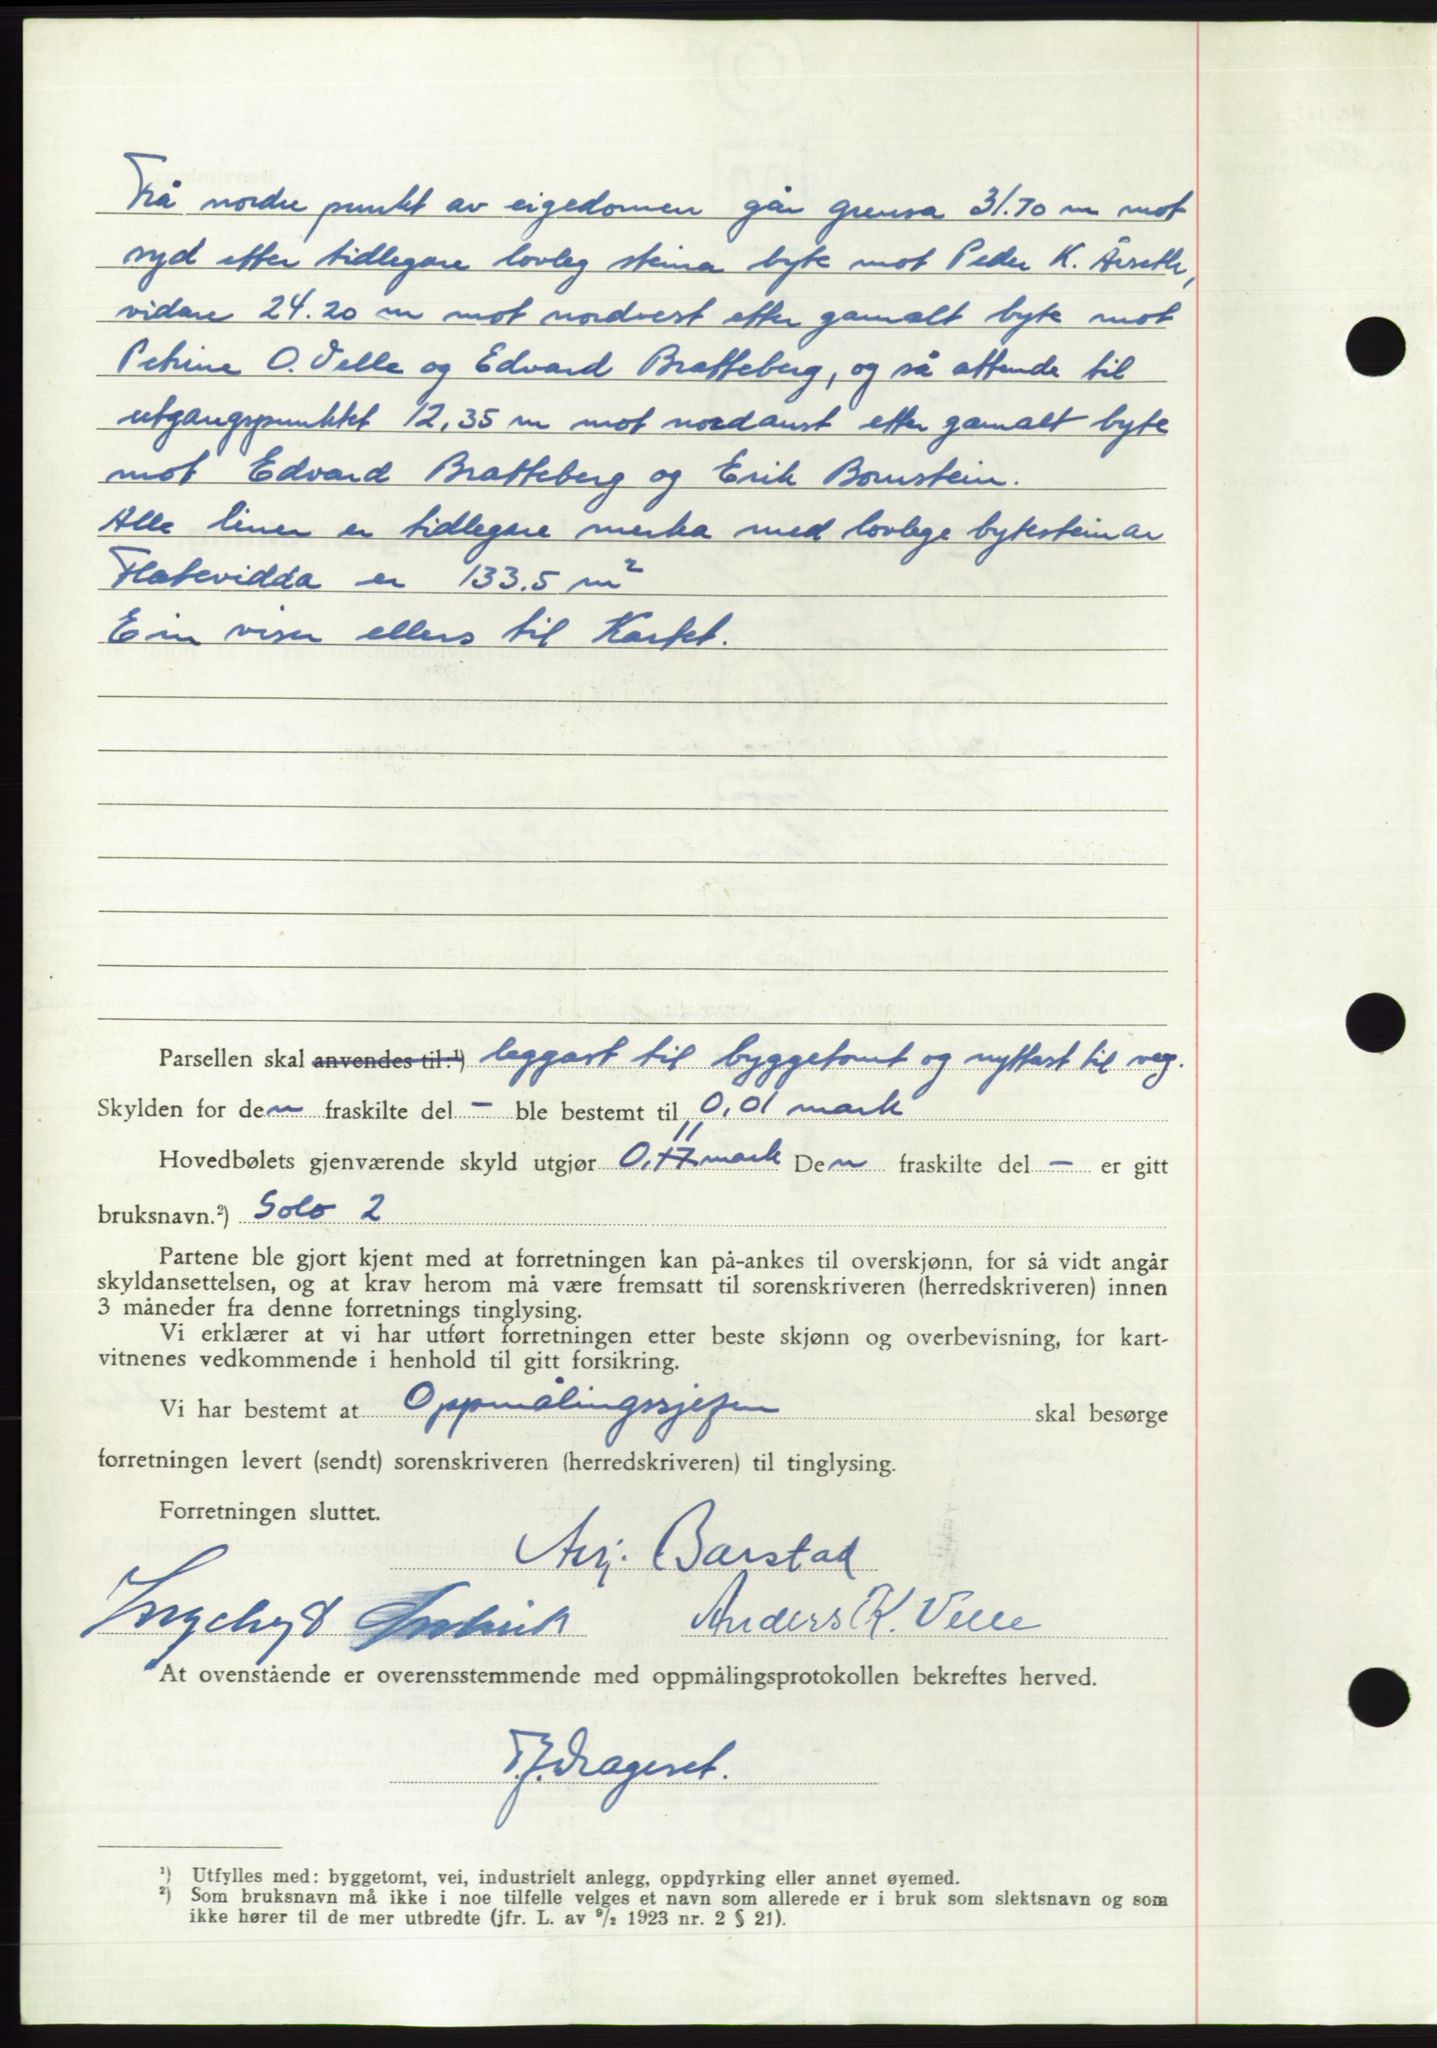 Frå nordre punkt av eigedomen går grensa 31.70 m mot
syd etter tidlegare lovleg steina byte mot Peder K. Årseth,
vidare 24.20 m mot nordvest etter gamalt byte mot
Petrine O. Velle og Edvard Bratteberg, og så attende til
utgangspunktet 12,35 m mot nordaust etter gamalt byte
mot Edvard Bratteberg og Erik Bornstein.
Alle liner er tidlegare merka med lovlege bytesteinar
Flatevidda er 133.5 m²
Ein viser ellers til Kartet.
Parsellen skal anvendes til:¹) leggast til byggetomt og nyttast til veg.
Skylden for den fraskilte del – ble bestemt til 0,01 mark
11
Hovedbølets gjenværende skyld utgjør 0,17 mark Den fraskilte del – er gitt
bruksnavn.²) Solo 2
Partene ble gjort kjent med at forretningen kan på-ankes til overskjønn, for så vidt angår
skyldansettelsen, og at krav herom må være fremsatt til sorenskriveren (herredskriveren) innen
3 måneder fra denne forretnings tinglysing.
Vi erklærer at vi har utført forretningen etter beste skjønn og overbevisning, for kart-
vitnenes vedkommende i henhold til gitt forsikring.
Vi har bestemt at Oppmålingssjefen skal besørge
forretningen levert (sendt) sorenskriveren (herredskriveren) til tinglysing.
Forretningen sluttet.
Barstad
Anders K. Velle
At ovenstående er overensstemmende med oppmålingsprotokollen bekreftes herved.
T.J. Drageset.
¹) Utfylles med: byggetomt, vei, industrielt anlegg, oppdyrking eller annet øyemed.
²) Som bruksnavn må ikke i noe tilfelle velges et navn som allerede er i bruk som slektsnavn og som
ikke hører til de mer utbredte (jfr. L. av 9/2 1923 nr. 2 § 21).